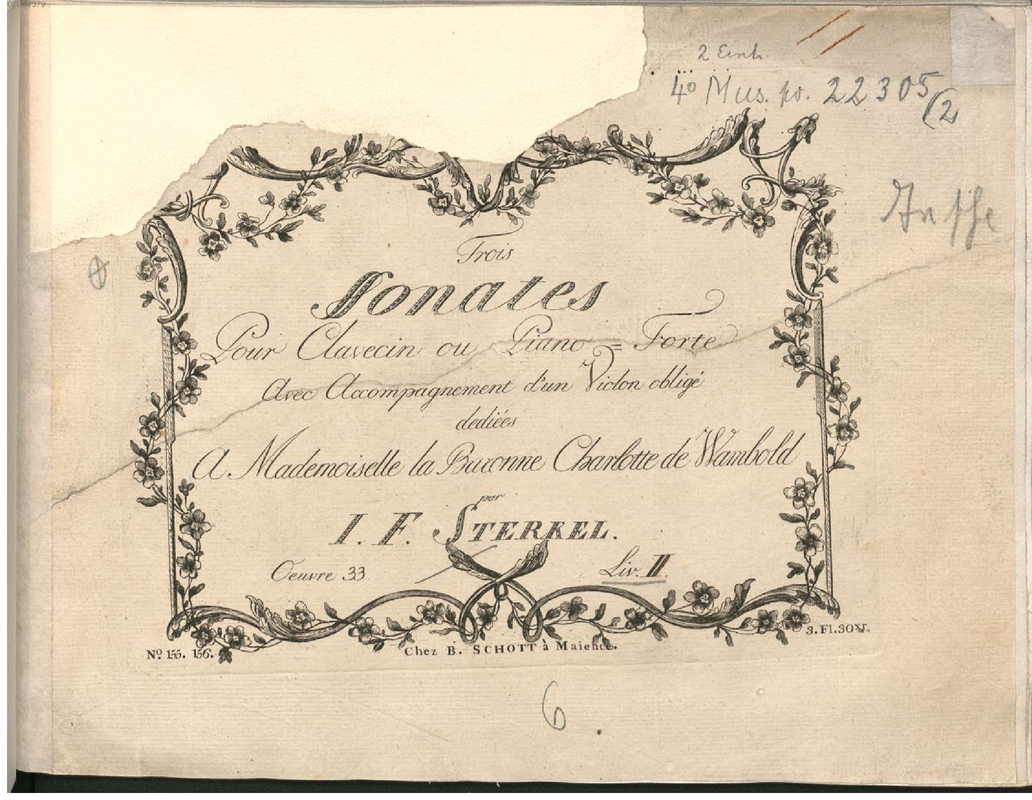 2 Einb.
4° Mus. pr. 22305(2
Trois
Sonates
Pour Clavecin ou Piano = Forte
Avec Accompagnement d'un Violon obligé
dediées
A Mademoiselle la Baronne Charlotte de Wambold
par
I. F. STERKEL.
Oeuvre 33
Liv. II
3. Fl. 30Xr.
Nº 155. 156.
Chez B. SCHOTT à Maience.
6.